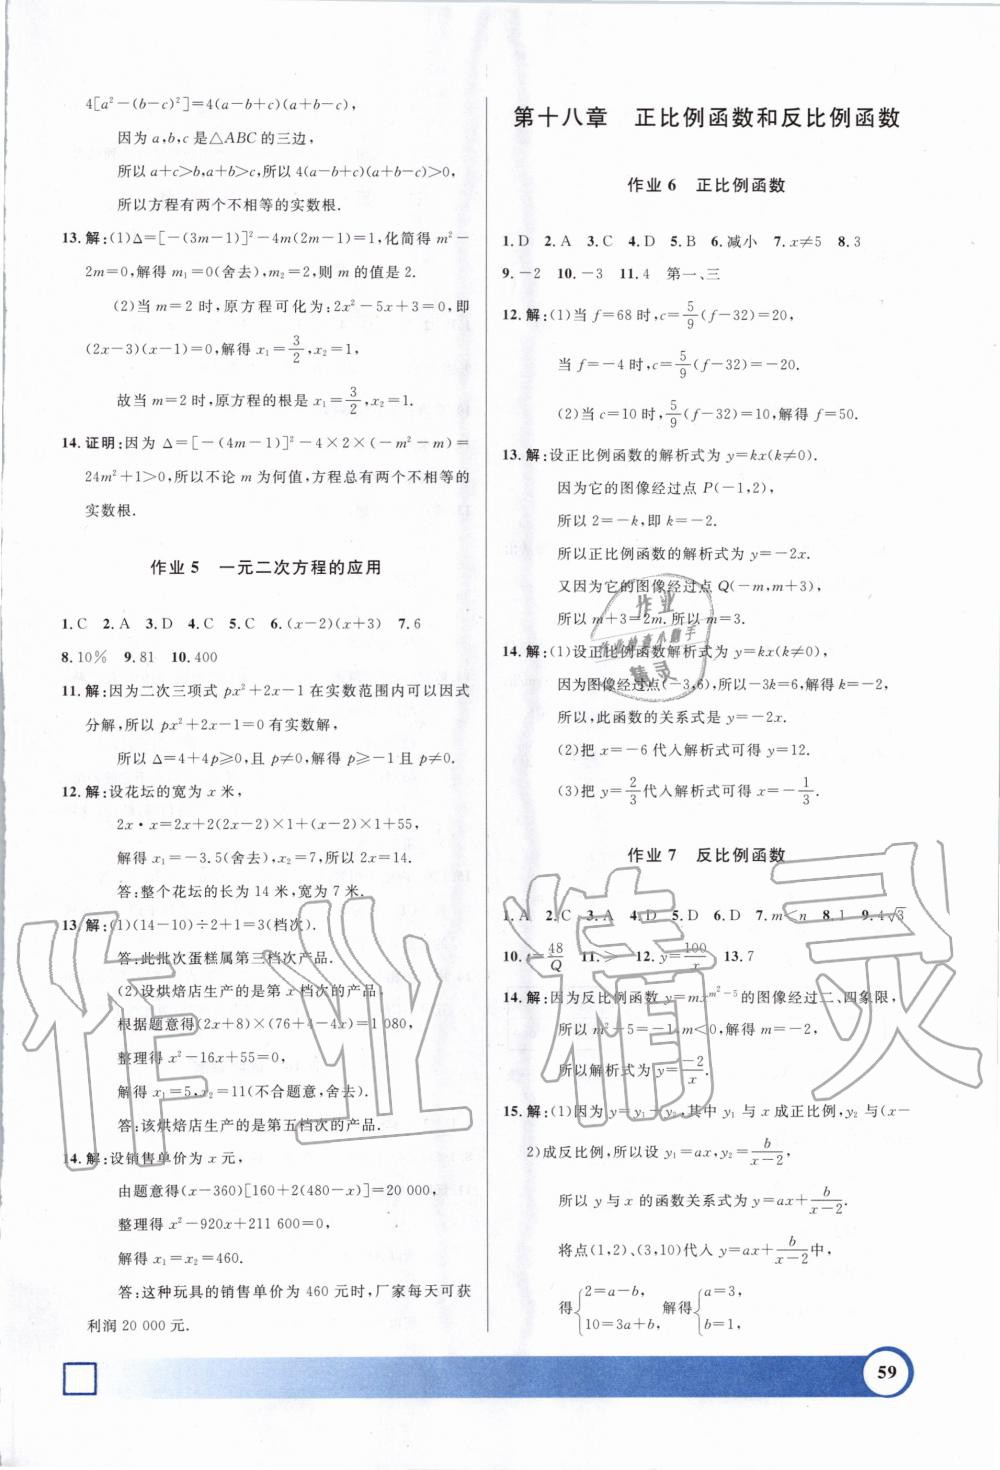 4[a²－(b－c)²]＝4(a－b＋c)(a＋b－c),
因为 a,b,c 是△ABC 的三边,
所以 a＋c＞b,a＋b＞c,所以 4(a－b＋c)(a＋b－c)＞0,
所以方程有两个不相等的实数根.
13. 解:(1)Δ＝[－(3m－1)]²－4m(2m－1)＝1,化简得 m²－
2m＝0,解得 m₁＝0(舍去),m₂＝2,则 m 的值是 2.
(2)当 m＝2 时,原方程可化为:2x²－5x＋3＝0,即
(2x－3)(x－1)＝0,解得 x₁＝3/2,x₂＝1,
故当 m＝2 时,原方程的根是 x₁＝3/2,x₂＝1.
14. 证明:因为 Δ＝[－(4m－1)]²－4×2×(－m²－m)＝
24m²＋1＞0,所以不论 m 为何值,方程总有两个不相等的
实数根.
作业 5　一元二次方程的应用
1. C 2. A 3. D 4. C 5. C 6. (x－2)(x＋3) 7. 6
8. 10% 9. 81 10. 400
11. 解:因为二次三项式 px²＋2x－1 在实数范围内可以因式
分解,所以 px²＋2x－1＝0 有实数解,
所以 Δ＝4＋4p≥0,且 p≠0,解得 p≥－1 且 p≠0.
12. 解:设花坛的宽为 x 米,
2x·x＝2x＋2(2x－2)×1＋(x－2)×1＋55,
解得 x₁＝－3.5(舍去),x₂＝7,所以 2x＝14.
答:整个花坛的长为 14 米,宽为 7 米.
13. 解:(1)(14－10)÷2＋1＝3(档次).
答:此批次蛋糕属第三档次产品.
(2)设烘焙店生产的是第 x 档次的产品,
根据题意得(2x＋8)×(76＋4－4x)＝1 080,
整理得 x²－16x＋55＝0,
解得 x₁＝5,x₂＝11(不合题意,舍去).
答:该烘焙店生产的是第五档次的产品.
14. 解:设销售单价为 x 元,
由题意得(x－360)[160＋2(480－x)]＝20 000,
整理得 x²－920x＋211 600＝0,
解得 x₁＝x₂＝460.
答:这种玩具的销售单价为 460 元时,厂家每天可获
利润 20 000 元.
第十八章　正比例函数和反比例函数
作业 6　正比例函数
1. D 2. A 3. C 4. D 5. B 6. 减小 7. x≠5 8. 3
9. －2 10. －3 11. 4　第一、三
12. 解:(1)当 f＝68 时,c＝5/9(f－32)＝20,
当 f＝－4 时,c＝5/9(f－32)＝－20.
(2)当 c＝10 时,5/9(f－32)＝10,解得 f＝50.
13. 解:设正比例函数的解析式为 y＝kx(k≠0).
因为它的图像经过点 P(－1,2),
所以 2＝－k,即 k＝－2.
所以正比例函数的解析式为 y＝－2x.
又因为它的图像经过点 Q(－m,m＋3),
所以 m＋3＝2m.所以 m＝3.
14. 解:(1)设正比例函数解析式为 y＝kx(k≠0),
因为图像经过点(－3,6),所以－3k＝6,解得 k＝－2.
所以,此函数的关系式是 y＝－2x.
(2)把 x＝－6 代入解析式可得 y＝12.
(3)把 y＝2/3代入解析式可得 x＝－1/3.
作业 7　反比例函数
1. A 2. C 3. A 4. D 5. D 6. D 7. m＜n 8. 1 9. 4√3
10. t＝48/Q 11. ＞ 12. y＝100/x 13. 7
14. 解:因为反比例函数 y＝mx^(m²－5)的图像经过二、四象限,
所以 m²－5＝－1,m＜0,解得 m＝－2,
所以解析式为 y＝－2/x.
15. 解:(1)因为 y＝y₁－y₂,其中 y₁ 与 x 成正比例,y₂ 与(x－
2)成反比例,所以设 y₁＝ax,y₂＝b/(x－2),
所以 y 与 x 的函数关系式为 y＝ax＋b/(x－2).
将点(1,2)、(3,10)代入 y＝ax＋b/(x－2)中,
得{2＝a－b, 10＝3a＋b, 解得{a＝3, b＝1,
59
作业
作业检查小助手
精灵
作业精灵